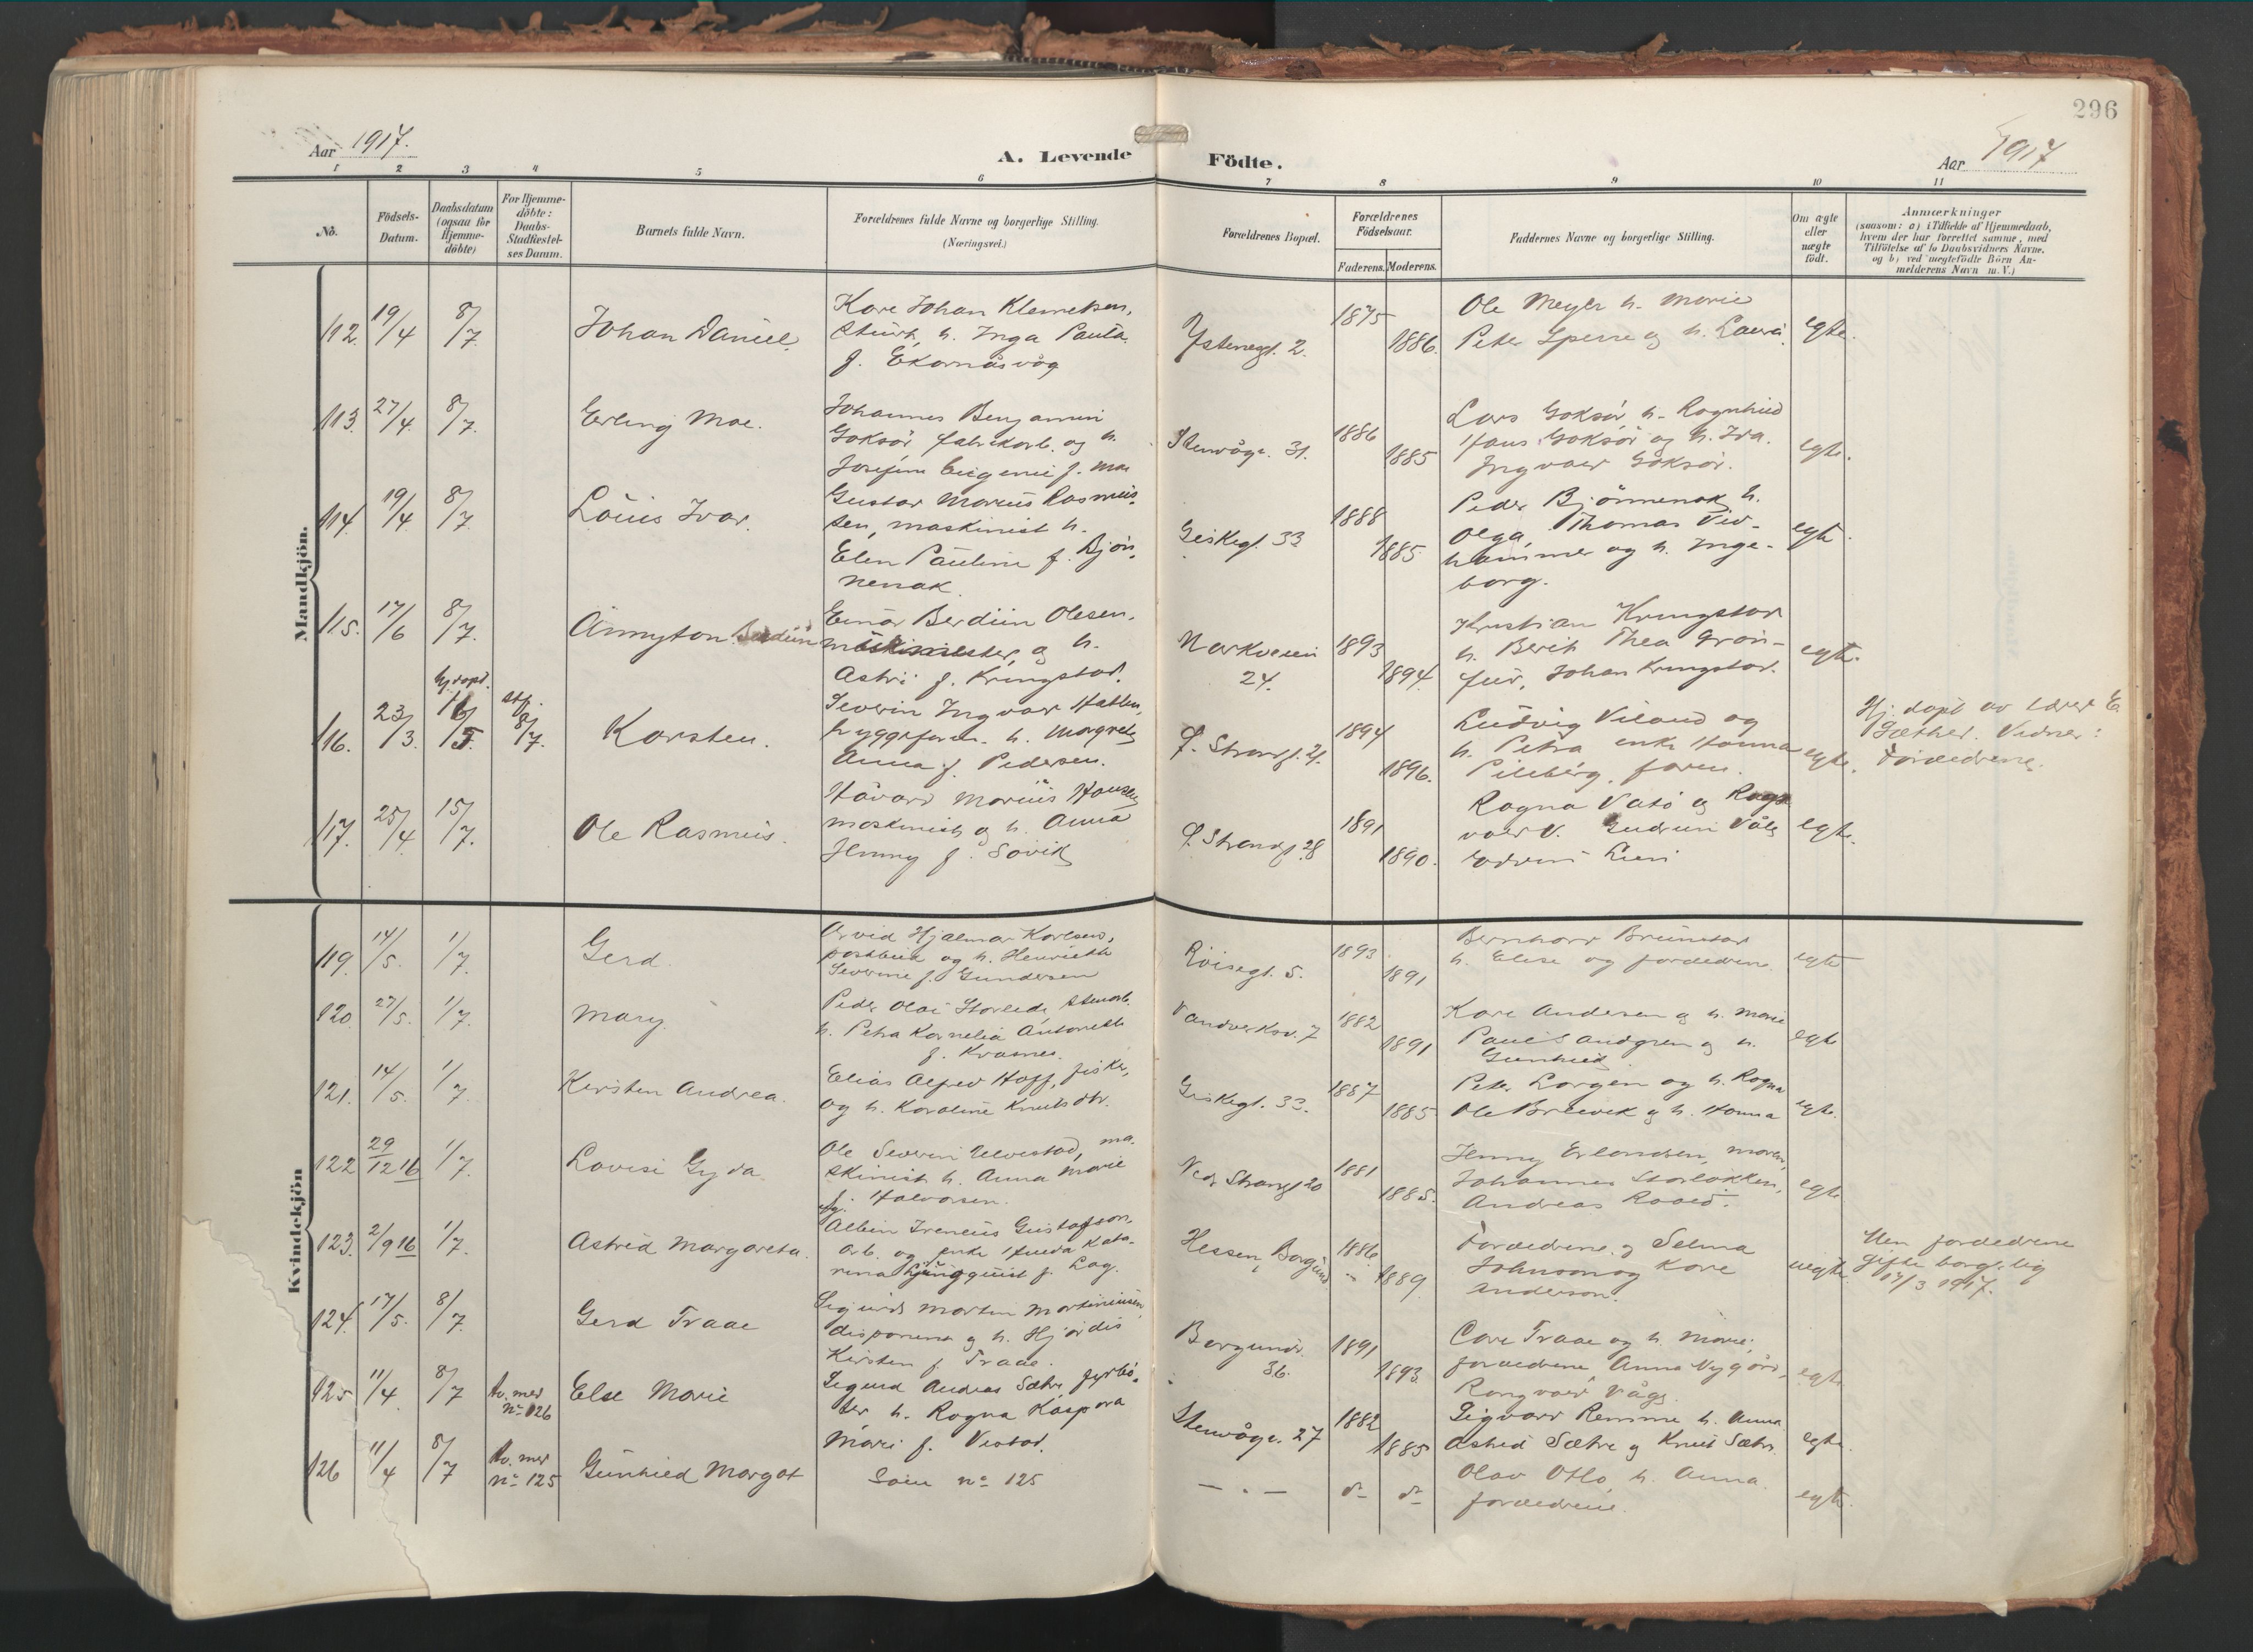 296
Aar 1917.
A. Levende
Födte.
Aar 1917
1 2 3 4 5 6 7 8 9 10 11
No.
Födsels-
Datum.
Daabsdatum
(ogsaa for
Hjemme-
döbte)
For Hjemme-
döbte:
Daabs-
Stadfæstel-
ses Datum.
Barnets fulde Navn.
Forældrenes fulde Navne og borgerlige Stilling.
(Næringsvei.)
Forældrenes Bopæl.
Forældrenes
Födselsaar.
Faderens. Moderens.
Faddernes Navne og borgerlige Stilling.
Om ægte
eller
uægte
födt.
Anmærkninger
(saasom: a) i Tilfælde af Hjemmedaab,
hvem der har forrettet samme, med
Tilföielse af to Daabsvidners Navne,
og b) ved uægtefödte Börn An-
melderens Navn m. V.)
Mandkjön.
112. 19/4 8/7. Johan Daniel.
Kare Johan Klemetsen,
h. Inga Paula
f. Ekornåsvåg
Ystenesgt. 2. 1875 1886.
Ole Myklr h. Marie
Peter Sperre og h. Laura. egte.
113. 27/4. 8/7. Erling Moe.
Johannes Benjamin
Goksör fabrikarb. og h.
Josefine Eugenie f. Moe
Stenvågv. 31. 1886 1885
Lars Goksör h. Ragnhild
Hans Goksör og h. Ida.
Ingvald Goksör. egte.
114. 19/4 8/7. Louis Ivar.
Gustav Marius Rasmus-
sen, maskinist h.
Elen Pauline f. Bjön-
nenak.
Giskegt. 33 1888 1885.
Peder Björnenak h.
Olga, Thomas Ved-
hammer og h. Inge-
borg. egte.
115. 17/6 8/7. Annyton Berdiin
Einar Berdiin Olesen,
og h.
Astri f. Kringstad.
Markveien
24. 1893 1894.
Kristian Kringstad
h. Berit Thea Grön-
fur, Johan Kringstad. egte.
116. 23/3. Hj. döpt. 16/5. stf. 8/7. Karsten.
Severin Ingvar Hatlen,
h. Margrete
Anna f. Pedersen.
Ø. Strandg. 21. 1894 1896.
Ludvig Viland og
h. Petra enke Hanna
Pilebérg, faren. egte.
Hj. döpt av lærer E.
Gæther. Vidner:
Forældrene.
117. 25/4. 15/7. Ole Rasmus.
Håvard Marius Hansen
maskinist og h. Anna
Jenny f. Sövik
Ø. Strandg. 28 1891 1890.
Ragna Vatö og Ragn-
vald V. Gudrun Våge
egte.
Kvindekjön
119. 14/5. 1/7. Gerd.
Arvid Hjalmar Karlsen,
postbud og h. Henriette
Severine f. Gundersen
Röisegt. 5. 1893 1891
Bernhard Brunstad
h. Elise og forældrene egte
120. 27/5. 1/7. Mary.
Peder Olai Storleda, stenarb.
h. Petra Kornelia Antonette
f. Kvamnes.
Vandverksv. 7 1882 1891
Kare Andersen og h. Marie
Paul Sandgren og h.
Gunhild. egte
121. 14/5. 1/7. Kirsten Andrea.
Elias Alfred Hoff, fisker,
og h. Karoline Knutsdtr.
Giskegt. 33. 1887 1885
Peter Korgen og h. Ragna
Ole Breivik og h. Hanna egte.
122 29/12 16 1/7. Lovise Gyda.
Ole Severin Ulvestad, ma-
skinist h. Anna Marie
f. Halvorsen.
Ned. Strandg. 20 1881 1885.
Jenny Erlandsen, moren,
Johannes Storlökken,
Andreas Roald. egte
123. 2/9 16 1/7. Astrid Margareta.
Albin Ireneus Gustafson,
arb. og enke Hulda Kata-
rina Ljungquist f. Lag.
Hessen, Borgund 1886 1889
Forældrene og Selma
Johnson og Kare
Anderson. uegte.
Men forældrene
gifte borgerlig
17/3 1917.
124. 17/5. 8/7. Gerd Traae
Sigurd Morten Martiniusen
disponent og h. Hjördis
Kirsten f. Traae.
Borgundv.
36. 1891 1893.
Care Traae og h. Marie,
forældrene, Anna Nygård,
Rangvald Våge. egte
125 11/4. 8/7 tv. med
No 126 Else Marie
Sigurd Andreas Sætre, fyrbö-
ter h. Ragna Kaspara
Mari f. Vestad.
Stenvågv. 27 1882 1885
Sigvard Remme h. Anna
Astrid Sætre og Knut Sætre. egte.
126 11/4 8/7 tv. med
No 125 Gunhild Margot
Som No 125
— " — do do
Olav Otlo, h. Anna.
forældrene. egte.